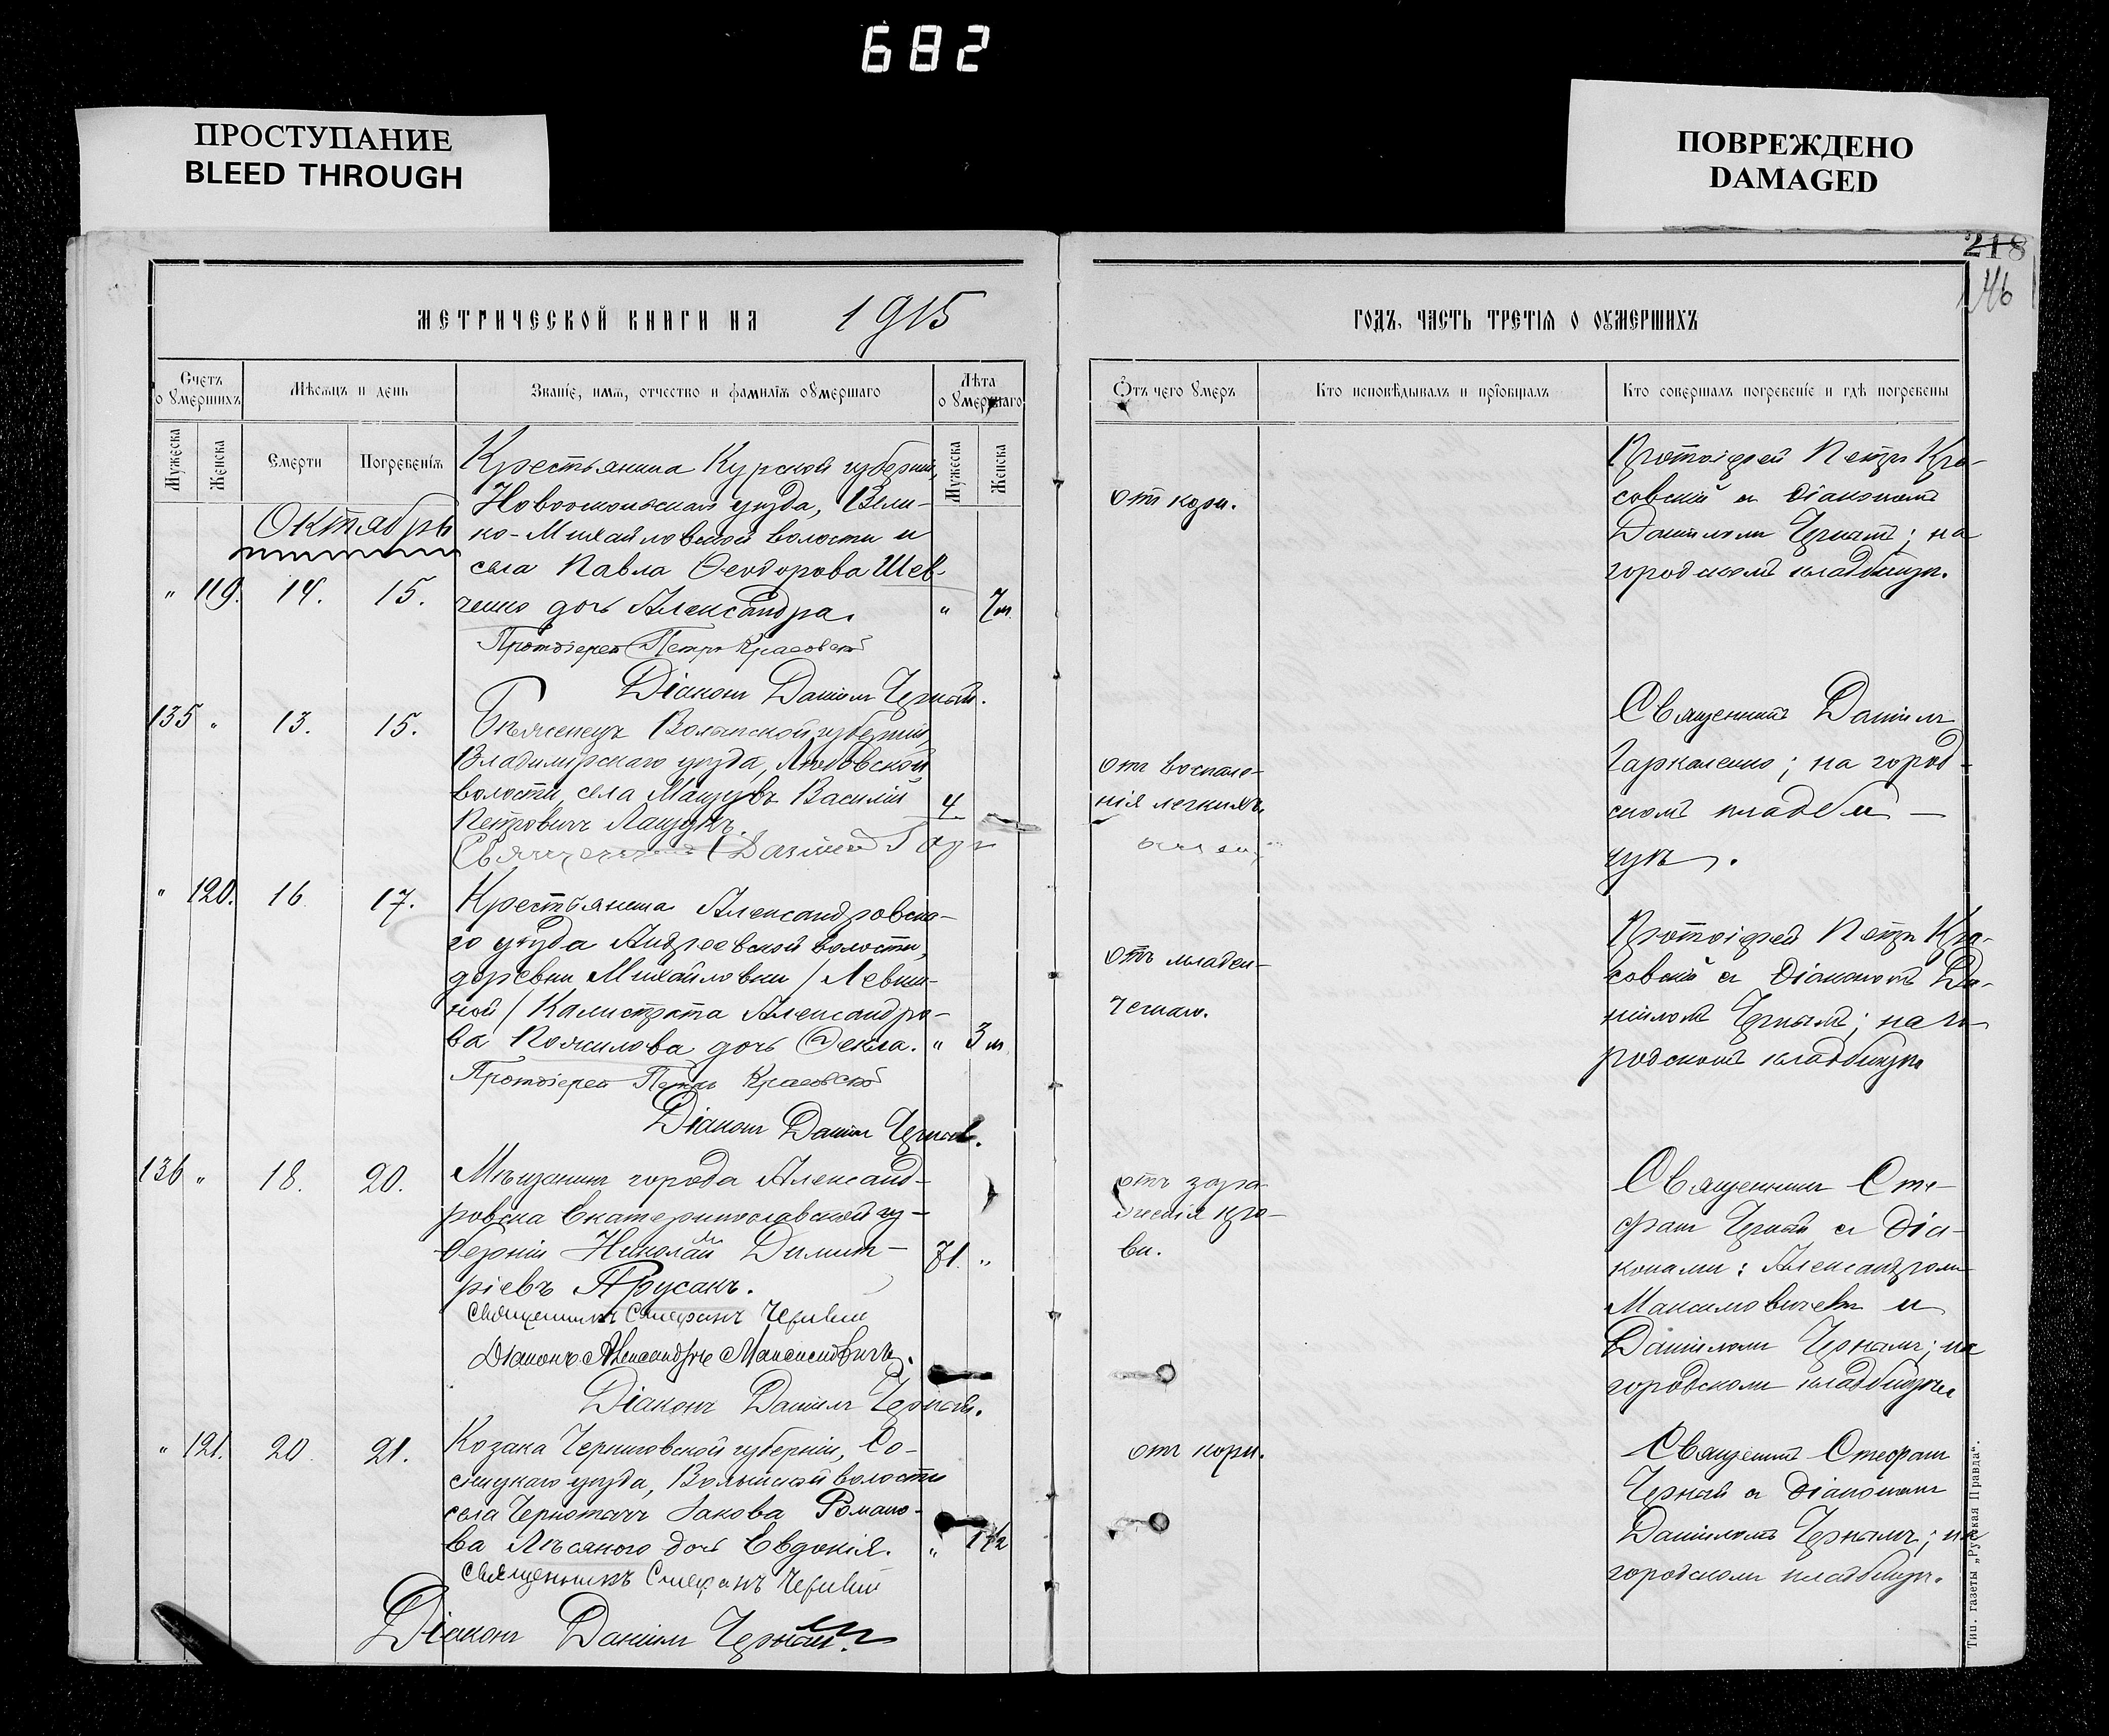 682
ПРОСТУПАНИЕ
BLEED THROUGH
ПОВРЕЖДЕНО
DAMAGED
218
146
МЕТРИЧЕСКОЙ КНИГИ НА 1915
ГОДЪ, ЧАСТЬ ТРЕТІЯ О ОУМЕРШИХЪ
Счетъ о умершихъ
Мѣсяцъ и день
Званіе, имя, отчество и фамилія оумершаго
Лѣта оумершаго
Отъ чего умеръ
Кто исповѣдывалъ и пріобщалъ
Кто совершалъ погребеніе и гдѣ погребены
Мужеска
Женска
Смерти
Погребенія
Мужеска
Женска
Октябрь
" 119. 14. 15.
Крестьянина Курской губерніи,
Новооскольскаго уѣзда, Вели-
ко-Михайловской волости и
села Павла Ѳеодорова Шев-
ченко дочь Александра. " 7 м.
Протоіерей Петръ Красовскій
Діаконъ Даніилъ Черный.
от кори.
Протоіерей Петръ Кра-
совскій съ діакономъ
Даніиломъ Чернымъ; на
городскомъ кладбищѣ.
135 " 13. 15.
Бѣженецъ Волынской губерніи,
Владимірскаго уѣзда,
волости, села Василій 4
Петровичъ
Священникъ Даніилъ Гар
отъ воспале-
нія легкихъ.
Священникъ Даніилъ
Гаркаленко; на город-
скомъ кладби-
щѣ.
" 120. 16 17.
Крестьянина Александровска-
го уѣзда Андреевской волости,
деревни Михайловки / Левши-
ной / Калистрата Александро-
ва дочь Ѳекла. " 3 м
Протоіерей Петръ Красовскій
Діаконъ Даніилъ Черный.
отъ младен-
ческаго.
Протоіерей Петръ Кра-
совскій съ діакономъ Да-
ніиломъ Чернымъ; на го-
родскомъ кладбищѣ
136 " 18. 20.
Мѣщанинъ города Александ-
ровска Екатеринославской гу-
берніи Николай Димит- 71. "
ріевъ Прусакъ.
Священникъ Стефанъ Черный
Діаконъ Александръ Максимовичъ.
Діаконъ Даніилъ Черный.
отъ зара-
женія кро-
ви.
Священникъ Сте-
фанъ Черный съ діа-
конами: Александромъ
Максимовичемъ и
Даніиломъ Чернымъ; на
городскомъ кладбищѣ
" 121. 20. 21.
Козака Черниговской губерніи, Со-
сницкаго уѣзда, Волынской волости
села Чернотичъ Іакова Романо-
ва дочь Евдокія. " 1 1/2
Священникъ Стефанъ Черный
Діаконъ Даніилъ Черный.
отъ кори.
Священникъ Стефанъ
Черный съ діакономъ
Даніиломъ Чернымъ; на
городскомъ кладбищѣ.
Тип. газеты „Русская Правда“.